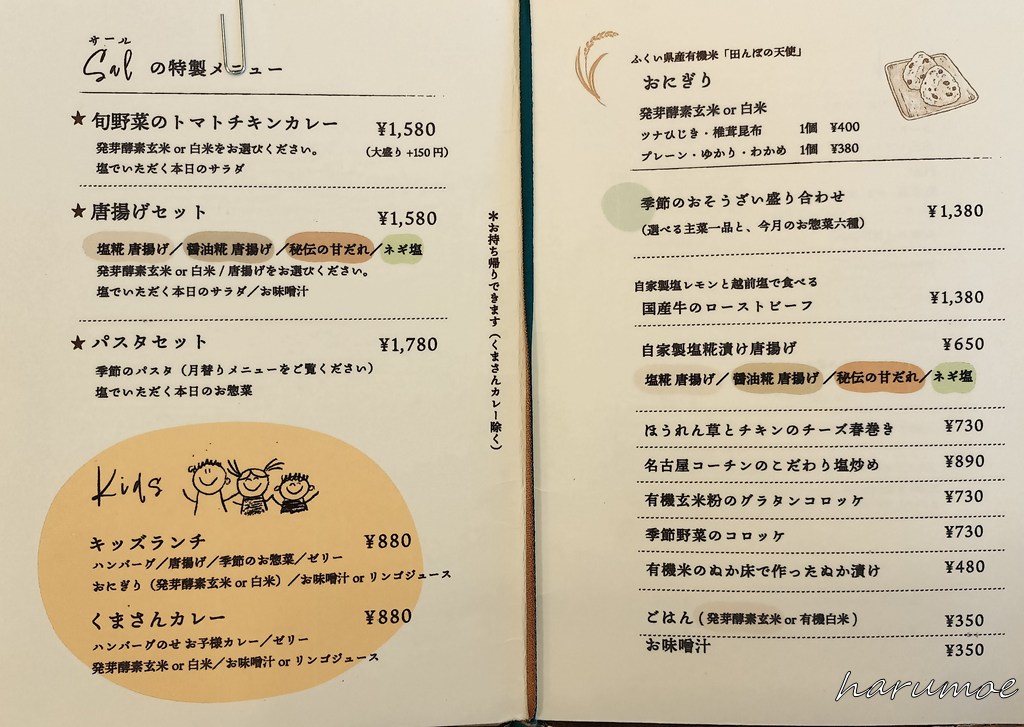 サール
Salの特製メニュー
★旬野菜のトマトチキンカレー ¥1,580
発芽酵素玄米 or 白米をお選びください。 （大盛り +150円）
塩でいただく本日のサラダ
★唐揚げセット ¥1,580
塩糀 唐揚げ／醤油糀 唐揚げ／秘伝の甘だれ／ネギ塩
発芽酵素玄米 or 白米 / 唐揚げをお選びください。
塩でいただく本日のサラダ／お味噌汁
★パスタセット ¥1,780
季節のパスタ（月替りメニューをご覧ください）
塩でいただく本日のお惣菜
Kids
キッズランチ ¥880
ハンバーグ／唐揚げ／季節のお惣菜／ゼリー
おにぎり（発芽酵素玄米 or 白米）／お味噌汁 or リンゴジュース
くまさんカレー ¥880
ハンバーグのせ お子様カレー／ゼリー
発芽酵素玄米 or 白米／お味噌汁 or リンゴジュース
＊お持ち帰りできます（くまさんカレー除く）
ふくい県産有機米「田んぼの天使」
おにぎり
発芽酵素玄米 or 白米
ツナひじき・椎茸昆布 1個 ¥400
プレーン・ゆかり・わかめ 1個 ¥380
季節のおそうざい盛り合わせ ¥1,380
（選べる主菜一品と、今月のお惣菜六種）
自家製塩レモンと越前塩で食べる
国産牛のローストビーフ ¥1,380
自家製塩糀漬け唐揚げ ¥650
塩糀 唐揚げ／醤油糀 唐揚げ／秘伝の甘だれ／ネギ塩
ほうれん草とチキンのチーズ春巻き ¥730
名古屋コーチンのこだわり塩炒め ¥890
有機玄米粉のグラタンコロッケ ¥730
季節野菜のコロッケ ¥730
有機米のぬか床で作ったぬか漬け ¥480
ごはん ( 発芽酵素玄米 or 有機白米 ) ¥350
お味噌汁 ¥350
harumoe